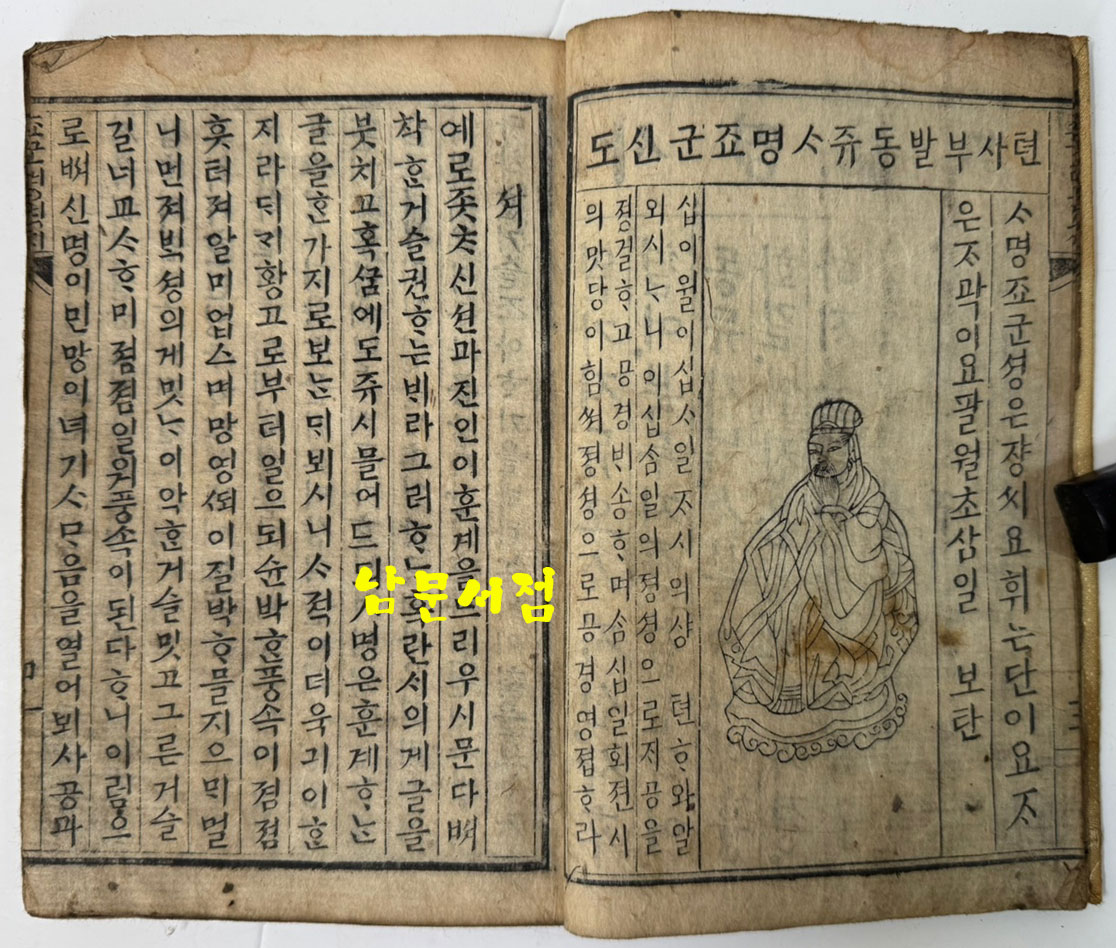 텬사부발동쥬ᄉᆞ명죠군신도
ᄉᆞ명죠군셩은쟝씨요휘ᄂᆞᆫ단이요ᄌᆞ
은ᄌᆞ곽이요팔월초삼일 보탄
십이월이십ᄉᆞ일ᄌᆞ시의샹 텬ᄒᆞ와알
외시ᄂᆞ니이십삼일의졍셩으로지공을
졍결ᄒᆞ고공경ᄇᆡ송ᄒᆞ며삼십일회젼시
의맛당이힘ᄡᅥ졍셩으로공경영졉ᄒᆞ라
셔
예로좃ᄎᆞ신션과진인이훈계을드리우시문다ᄡᅥ
챡ᄒᆞᆫ거슬권ᄒᆞ는ᄇᆡ라그러ᄒᆞ호란시의게글을
붓치고혹ᄭᅮᆷ에도쥬시믈어드ᄆᆡᄉᆞ명은훈계ᄒᆞᄂᆞᆫ
글을ᄒᆞᆫ가지로보ᄂᆞᆫᄃᆡ뵈시니ᄉᆞ적이더욱긔이ᄒᆞ
지라ᄃᆡ긔황고로부터일으되슌박ᄒᆞᆫ풍속이졈졈
흣터져알미업스며망영이질박ᄒᆞ믈지으ᄆᆡ멀
니먼져ᄇᆡᆨ셩의게밋ᄂᆞ이악ᄒᆞᆫ거슬밋고그른거슬
길너교ᄉᆞᄒᆞ미졈졈일위풍속이된다ᄒᆞ니이럼으
로ᄡᅥ신명이민망이녀기ᄉᆞᄆᆞ음을열어뫼사공과
남문서점